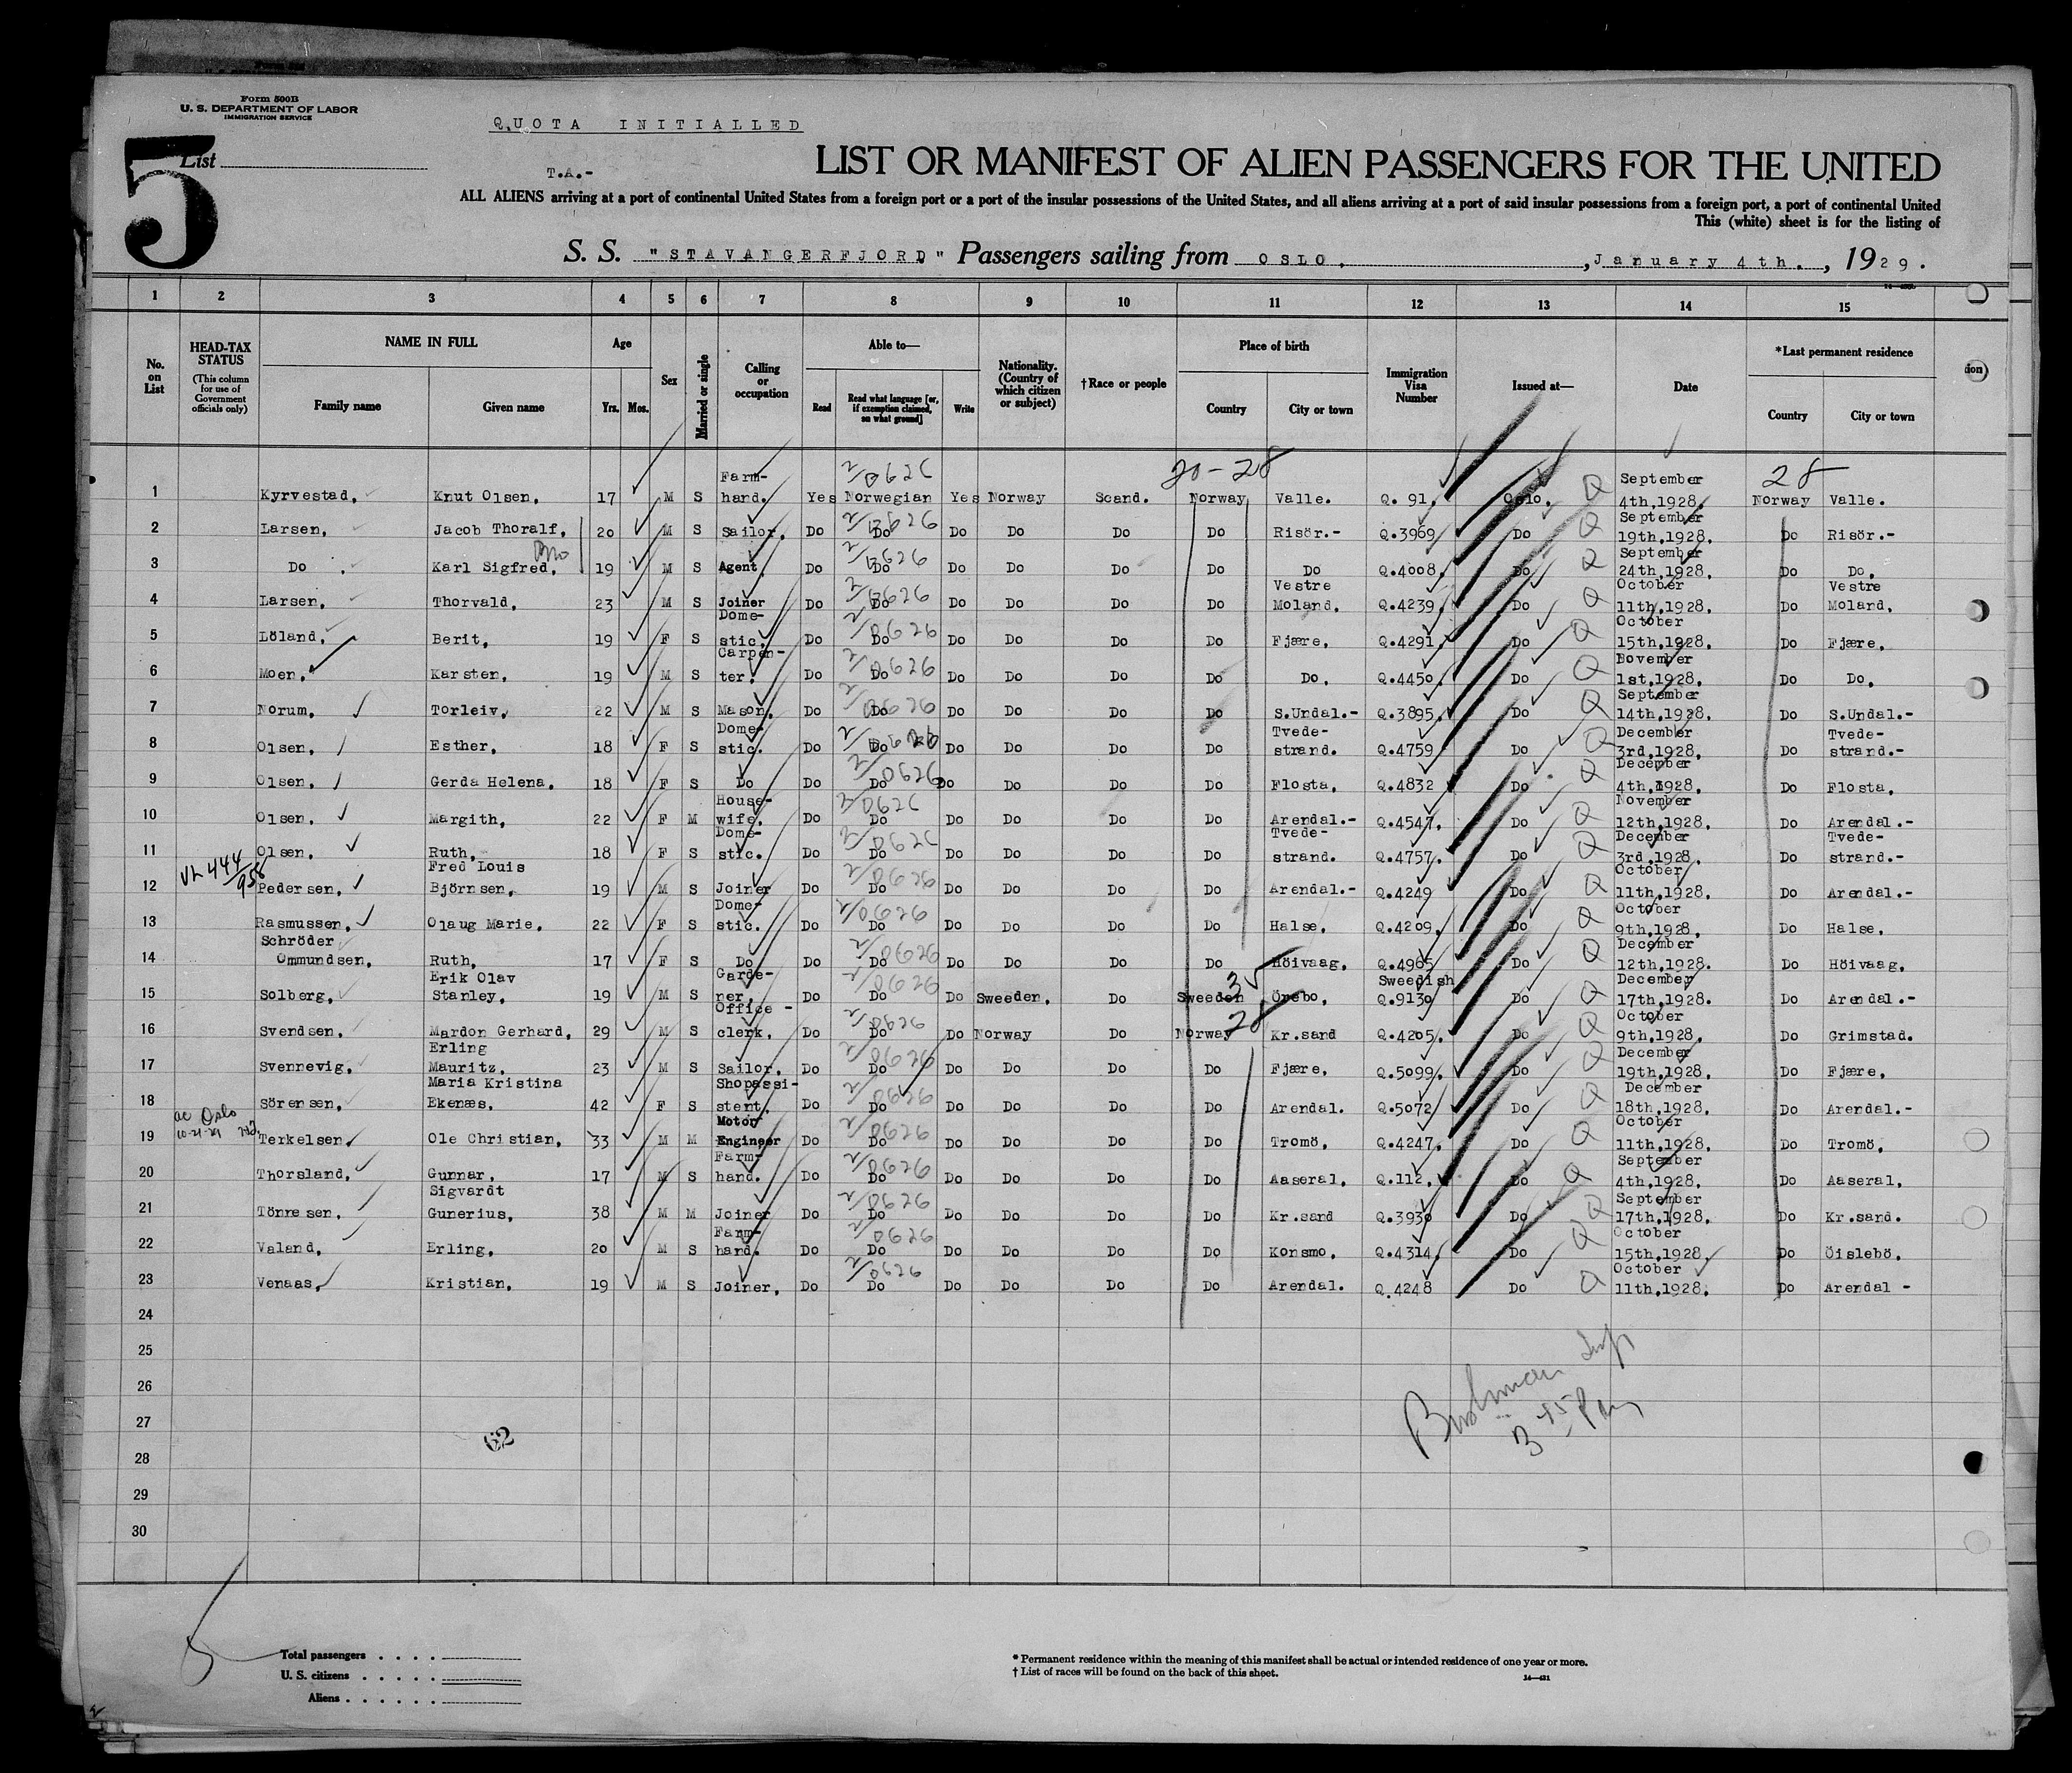 Form 500B
U. S. DEPARTMENT OF LABOR
IMMIGRATION SERVICE
QUOTA INITIALLED
5
List
T.A.-
LIST OR MANIFEST OF ALIEN PASSENGERS FOR THE UNITED
ALL ALIENS arriving at a port of continental United States from a foreign port or a port of the insular possessions of the United States, and all aliens arriving at a port of said insular possessions from a foreign port, a port of continental United
This (white) sheet is for the listing of
S. S. "STAVANGERFJORD" Passengers sailing from OSLO, , January 4th. , 1929.
1 2 3 4 5 6 7 8 9 10 11 12 13 14 15
No. on List HEAD-TAX STATUS (This column for use of Government officials only) NAME IN FULL Family name Given name Age Yrs. Mos. Sex Married or single Calling or occupation Able to— Read Read what language [or, if exemption claimed, on what ground] Write Nationality. (Country of which citizen or subject) †Race or people Place of birth Country City or town Immigration Visa Number Issued at— Date *Last permanent residence Country City or town
20-28 28
1 Kyrvestad, Knut Olsen, 17 M S Farm-hand. Yes Norwegian Yes Norway Scand. Norway Valle. Q. 91. Oslo. Q September 4th,1928. Norway Valle.
2 Larsen, Jacob Thoralf, 20 M S Sailor, Do Do Do Do Do Do Risör.- Q.3969 Do Q September 19th,1928. Do Risör.-
3 Do Karl Sigfred, Bro 19 M S Agent, Do Do Do Do Do Do Do Q.4008, Do Q September 24th,1928. Do Do,
4 Larsen, Thorvald, 23 M S Joiner Do Do Do Do Do Do Vestre Moland. Q.4239, Do Q October 11th,1928. Do Vestre Moland.
5 Löland, Berit, 19 F S Dome-stic, Do Do Do Do Do Do Fjære, Q.4291, Do Q October 15th,1928. Do Fjære,
6 Moen, Karsten, 19 M S Carpen-ter. Do Do Do Do Do Do Do, Q.4450, Do Q November 1st,1928. Do Do,
7 Norum, Torleiv, 22 M S Mason, Do Do Do Do Do Do S.Undal.- Q.3895, Do Q September 14th,1928. Do S.Undal.-
8 Olsen, Esther, 18 F S Dome-stic. Do Do Do Do Do Do Tvede-strand. Q.4759 Do Q December 3rd,1928. Do Tvede-strand.-
9 Olsen, Gerda Helena, 18 F S Do Do Do Do Do Do Do Flosta, Q.4832 Do Q December 4th,1928. Do Flosta,
10 Olsen, Margith, 22 F M House-wife, Do Do Do Do Do Do Arendal.- Q.4547, Do Q November 12th,1928. Do Arendal.-
11 Olsen, Ruth, 18 F S Dome-stic. Do Do Do Do Do Do Tvede-strand. Q.4757. Do Q December 3rd,1928. Do Tvede-strand.-
12 Pedersen, Fred Louis Björnsen, 19 M S Joiner Do Do Do Do Do Do Arendal.- Q.4249 Do Q October 11th,1928. Do Arendal.-
13 Rasmussen, Olaug Marie, 22 F S Dome-stic. Do Do Do Do Do Do Halse, Q.4209, Do Q October 9th,1928, Do Halse,
14 Schröder Ommundsen, Ruth, 17 F S Do Do Do Do Do Do Do Höivaag, Q.4965 Do Q December 12th,1928. Do Höivaag,
15 Solberg, Erik Olav Stanley, 19 M S Garde-ner, Do Do Do Sweeden, Do Sweeden Örebo, Swedish Q.9130 Do Q December 17th,1928. Do Arendal.-
16 Svendsen, Mardon Gerhard, 29 M S Office - clerk, Do Do Do Norway Do Norway 28 Kr.sand Q.4205, Do Q October 9th,1928. Do Grimstad.
17 Svennevig, Erling Mauritz, 23 M S Sailor, Do Do Do Do Do Do Fjære, Q.5099, Do Q December 19th,1928. Do Fjære,
18 Sörensen, Maria Kristina Ekenæs, 42 F S Shopassi-stent, Do Do Do Do Do Do Arendal. Q.5072 Do Q December 18th,1928. Do Arendal.-
19 Terkelsen, Ole Christian, 33 M M Motor Engineer Do Do Do Do Do Do Tromö, Q.4247, Do Q October 11th,1928. Do Tromö,
20 Thorsland, Gunnar, 17 M S Farm-hand. Do Do Do Do Do Do Aaseral, Q.112, Do Q September 4th,1928. Do Aaseral,
21 Tönnesen, Sigvardt Gunerius, 38 M M Joiner Do Do Do Do Do Do Kr.sand Q.3930 Do Q September 17th,1928, Do Kr.sand.
22 Valand, Erling, 20 M S Farm-hand. Do Do Do Do Do Do Konsmo, Q.4314, Do Q October 15th,1928, Do Öislebö,
23 Venaas, Kristian, 19 M S Joiner, Do Do Do Do Do Do Arendal. Q.4248 Do Q October 11th,1928. Do Arendal -
24
25
26
27
28
29
30
62
3 45 Pm
Total passengers
U. S. citizens
Aliens
* Permanent residence within the meaning of this manifest shall be actual or intended residence of one year or more.
† List of races will be found on the back of this sheet.